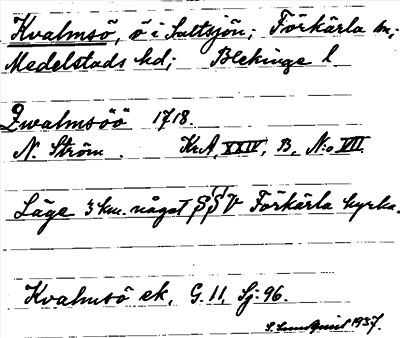 Kvalmsö, ö i Saltsjön; Förkärla sn;
Medelstads hd; Blekinge l
Qwalmsöö 1718.
N. Ström. Kr.A, XXIV, B, N:o VII.
Läge 3 km. något S Förkärla kyrka.
Kvalmsö ek, G. 11, Sj: 96.
1937.